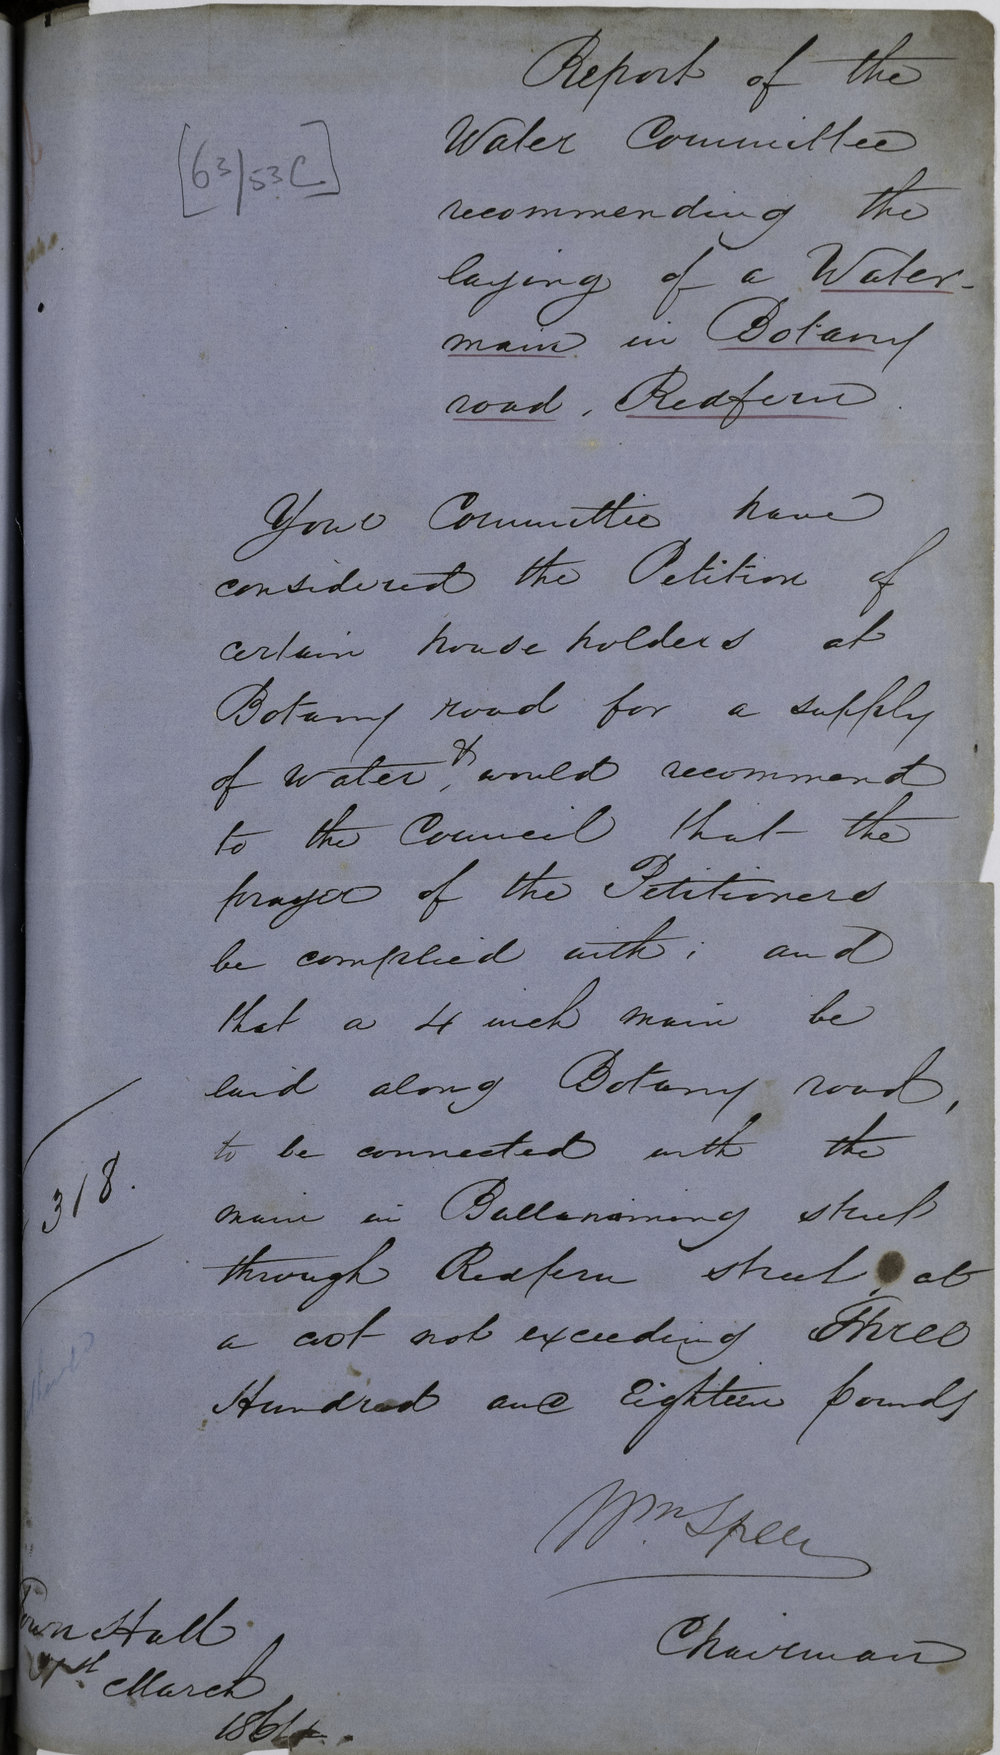 Report of the
Water Committee
[63/53C]
recommending the
laying of a Water-
main in Botany
road, Redfern.
Your Committee have
considered the Petition of
certain house holders at
Botany road for a supply
of water, & would recommend
to the Council that the
prayer of the Petitioners
be complied with; and
that a 4 inch main be
laid along Botany road,
to be connected with the
main in Bullanaming street
318.
through Redfern street, at
a cost not exceeding Three
Hundred and Eighteen pounds
Wm Speer
Chairman
Town Hall
March
1864.